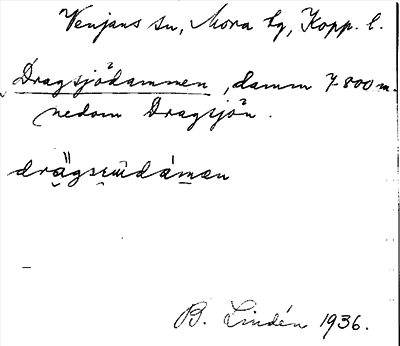 Venjans sn, Mora tg, Kopp. l.
Dragsjödammen, damm 7-800 m.
nedom Dragsjön.
B. Lindén 1936.